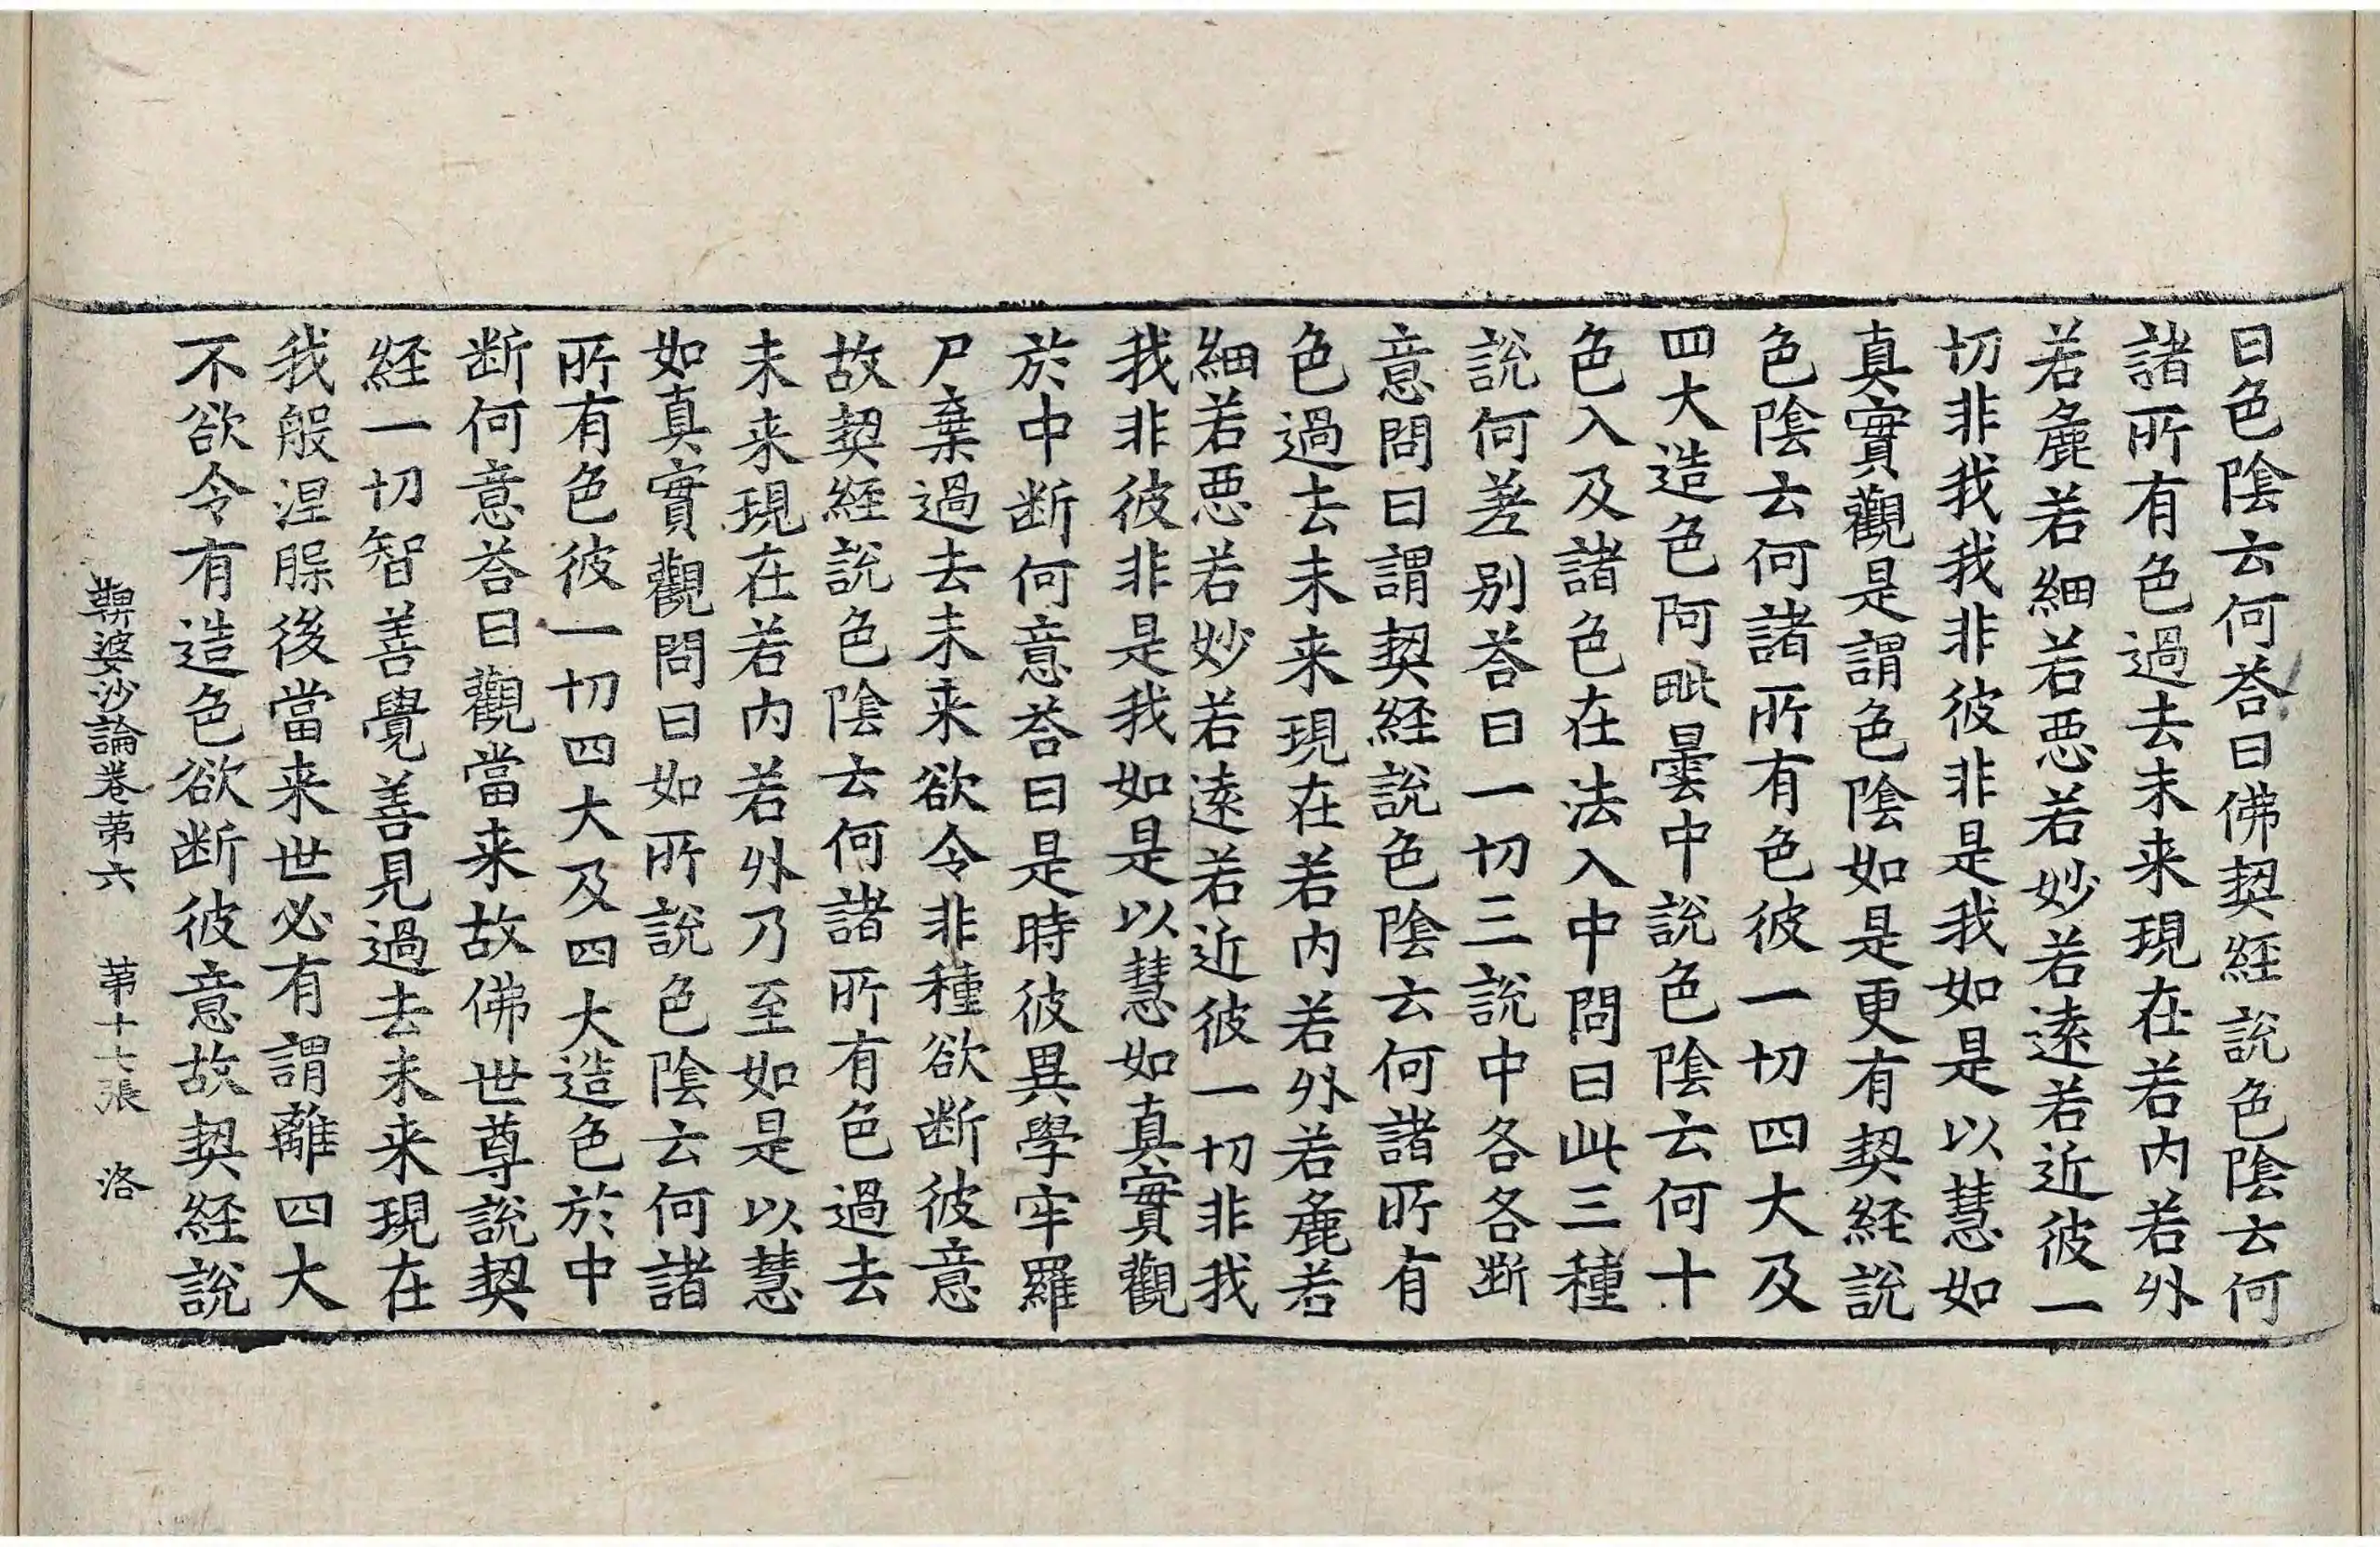 曰色陰云何荅曰佛契經說色陰云何
諸所有色過去未来現在若内若外
若麁若細若悪若妙若遠若近彼一
切非我我非彼非是我如是以慧如
真實觀是謂色陰如是更有契經說
色陰云何諸所有色彼一切四大及
四大造色阿毗曇中說色陰云何十
色入及諸色在法入中問曰此三種
說何差别荅曰一切三說中各各断
意問曰謂契經說色陰云何諸所有
色過去未来現在若内若外若麁若
細若悪若妙若遠若近彼一切非我
我非彼非是我如是以慧如真實觀
於中断何意荅曰是時彼異學牢羅
尸棄過去未来欲令非種欲断彼意
故契經說色陰云何諸所有色過去
未来現在若内若外乃至如是以慧
如真實觀問曰如所說色陰云何諸
所有色彼一切四大及四大造色於中
断何意荅曰觀當来故佛世尊說契
經一切智善覺善見過去未来現在
我般涅槃後當来世必有謂離四大
不欲令有造色欲断彼意故契經說
鞞婆沙論卷第六 第十七張 洛